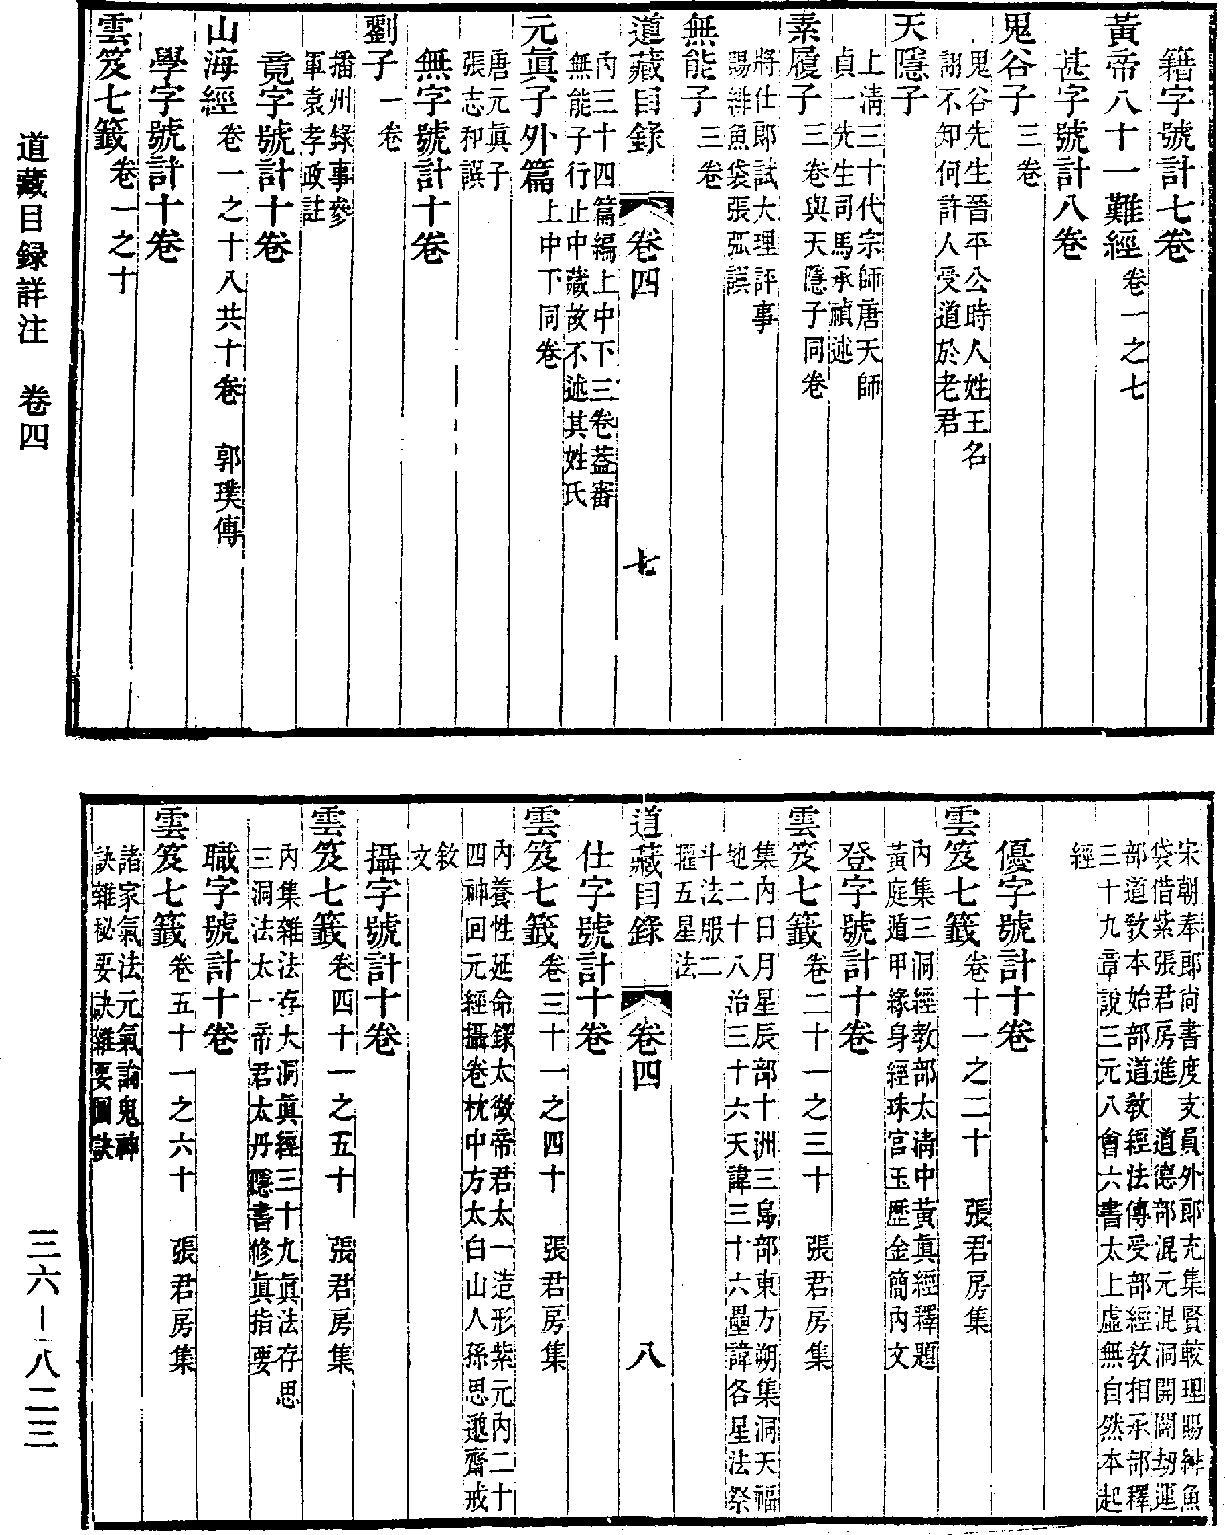 籍字號計七卷
黃帝八十一難經 卷一之七
甚字號計八卷
鬼谷子 三卷
鬼谷先生晉平公時人姓王名
詡不知何許人受道於老君
天隱子
上清三十代宗師唐天師
貞一先生司馬承禎述
素履子 三卷與天隱子同卷
將仕郎試大理評事
賜緋魚袋張弧譔
無能子 三卷
道藏目錄 卷四 七
內三十四篇編上中下三卷葢審
無能子行止中藏故不述其姓氏
元眞子外篇 上中下同卷
唐元眞子
張志和譔
無字號計十卷
劉子 一卷
播州錄事參
軍袁孝政註
竟字號計十卷
山海經 卷一之十八共十卷 郭璞傳
學字號計十卷
雲笈七籤 卷一之十
道藏目録詳注 卷四
宋朝奉郎尚書度支員外郎充集賢較理賜緋魚
袋借紫張君房進 道德部混元混洞開闢劫運
部道敎本始部道敎經法傳受部經敎相承部釋
三十九章說三元八會六書太上虛無自然本起
經
優字號計十卷
雲笈七籤 卷十一之二十 張君房集
內集三洞經敎部太淸中黃眞經釋題
黃庭遁甲緣身經珠宮玉歷金簡內文
登字號計十卷
雲笈七籤 卷二十一之三十 張君房集
集內日月星辰部十洲三島部東方朔集洞天福
地二十八治三十六天諱三十六壘諱各星法祭
斗法服二
躔五星法
道藏目錄 卷四 八
仕字號計十卷
雲笈七籤 卷三十一之四十 張君房集
內養性延命錄太微帝君太一造形紫元內二十
四神回元經攝卷枕中方太白山人孫思邈齋戒
敘
文
攝字號計十卷
雲笈七籤 卷四十一之五十 張君房集
內集雜法存大洞眞經三十九眞法存思
三洞法太一帝君太丹隱書修眞指要
職字號計十卷
雲笈七籤 卷五十一之六十 張君房集
諸家氣法元氣論鬼神
訣雜秘要訣雜要圖訣
三六—八二三